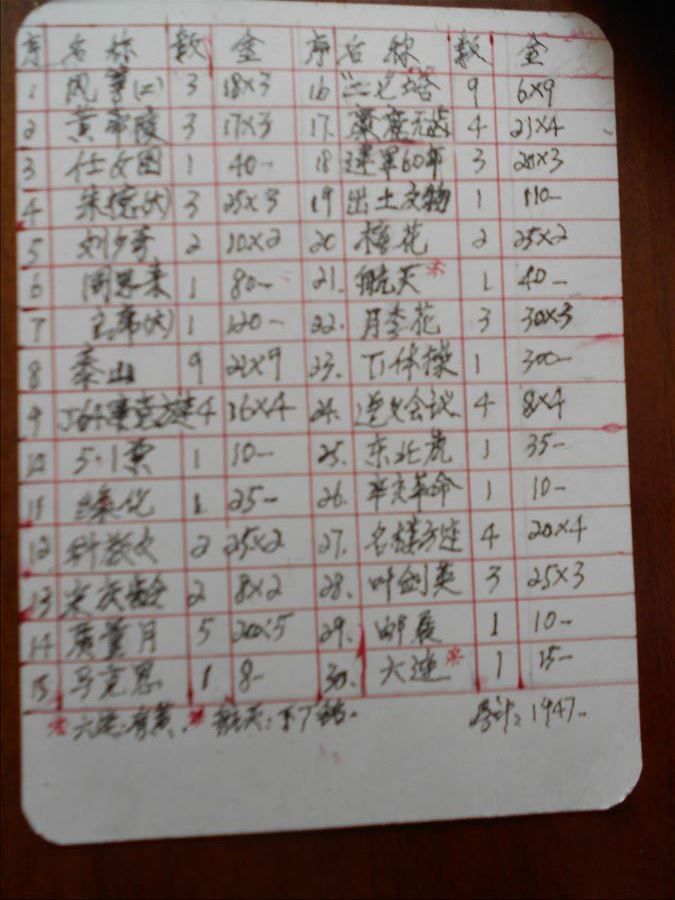 序 名称 数 金 序 名称 数 金
1 风筝(二) 3 18×3 16 "二七"塔 9 6×9
2 黄帝陵 3 17×3 17. 麋鹿无齿 4 21×4
3 仕女图 1 40- 18 建军60年 3 20×3
4 朱德(大) 3 25×3 19 出土文物 1 110-
5 刘少奇 2 10×2 20 梅花 2 25×2
6 周恩来 1 80- 21. 航天※ 1 40-
7 主席(大) 1 120- 22. 月季花 3 30×3
8 泰山 9 21×9 23. 体操 1 300-
9 J64 方连 4 16×4 24. 遵义会议 4 8×4
10 5·1票 1 10- 25. 东北虎 1 35-
11 绿化 1 25- 26. 辛亥革命 1 10-
12 科教文 2 25×2 27. 名楼方连 4 20×4
13 宋庆龄 2 8×2 28. 叶剑英 3 25×3
14 质量月 5 20×5 29. 邮展 1 10-
15 马克思 1 8- 30. 六连※ 1 15-
※六连:有黄. ※航天:下 总计:1947-